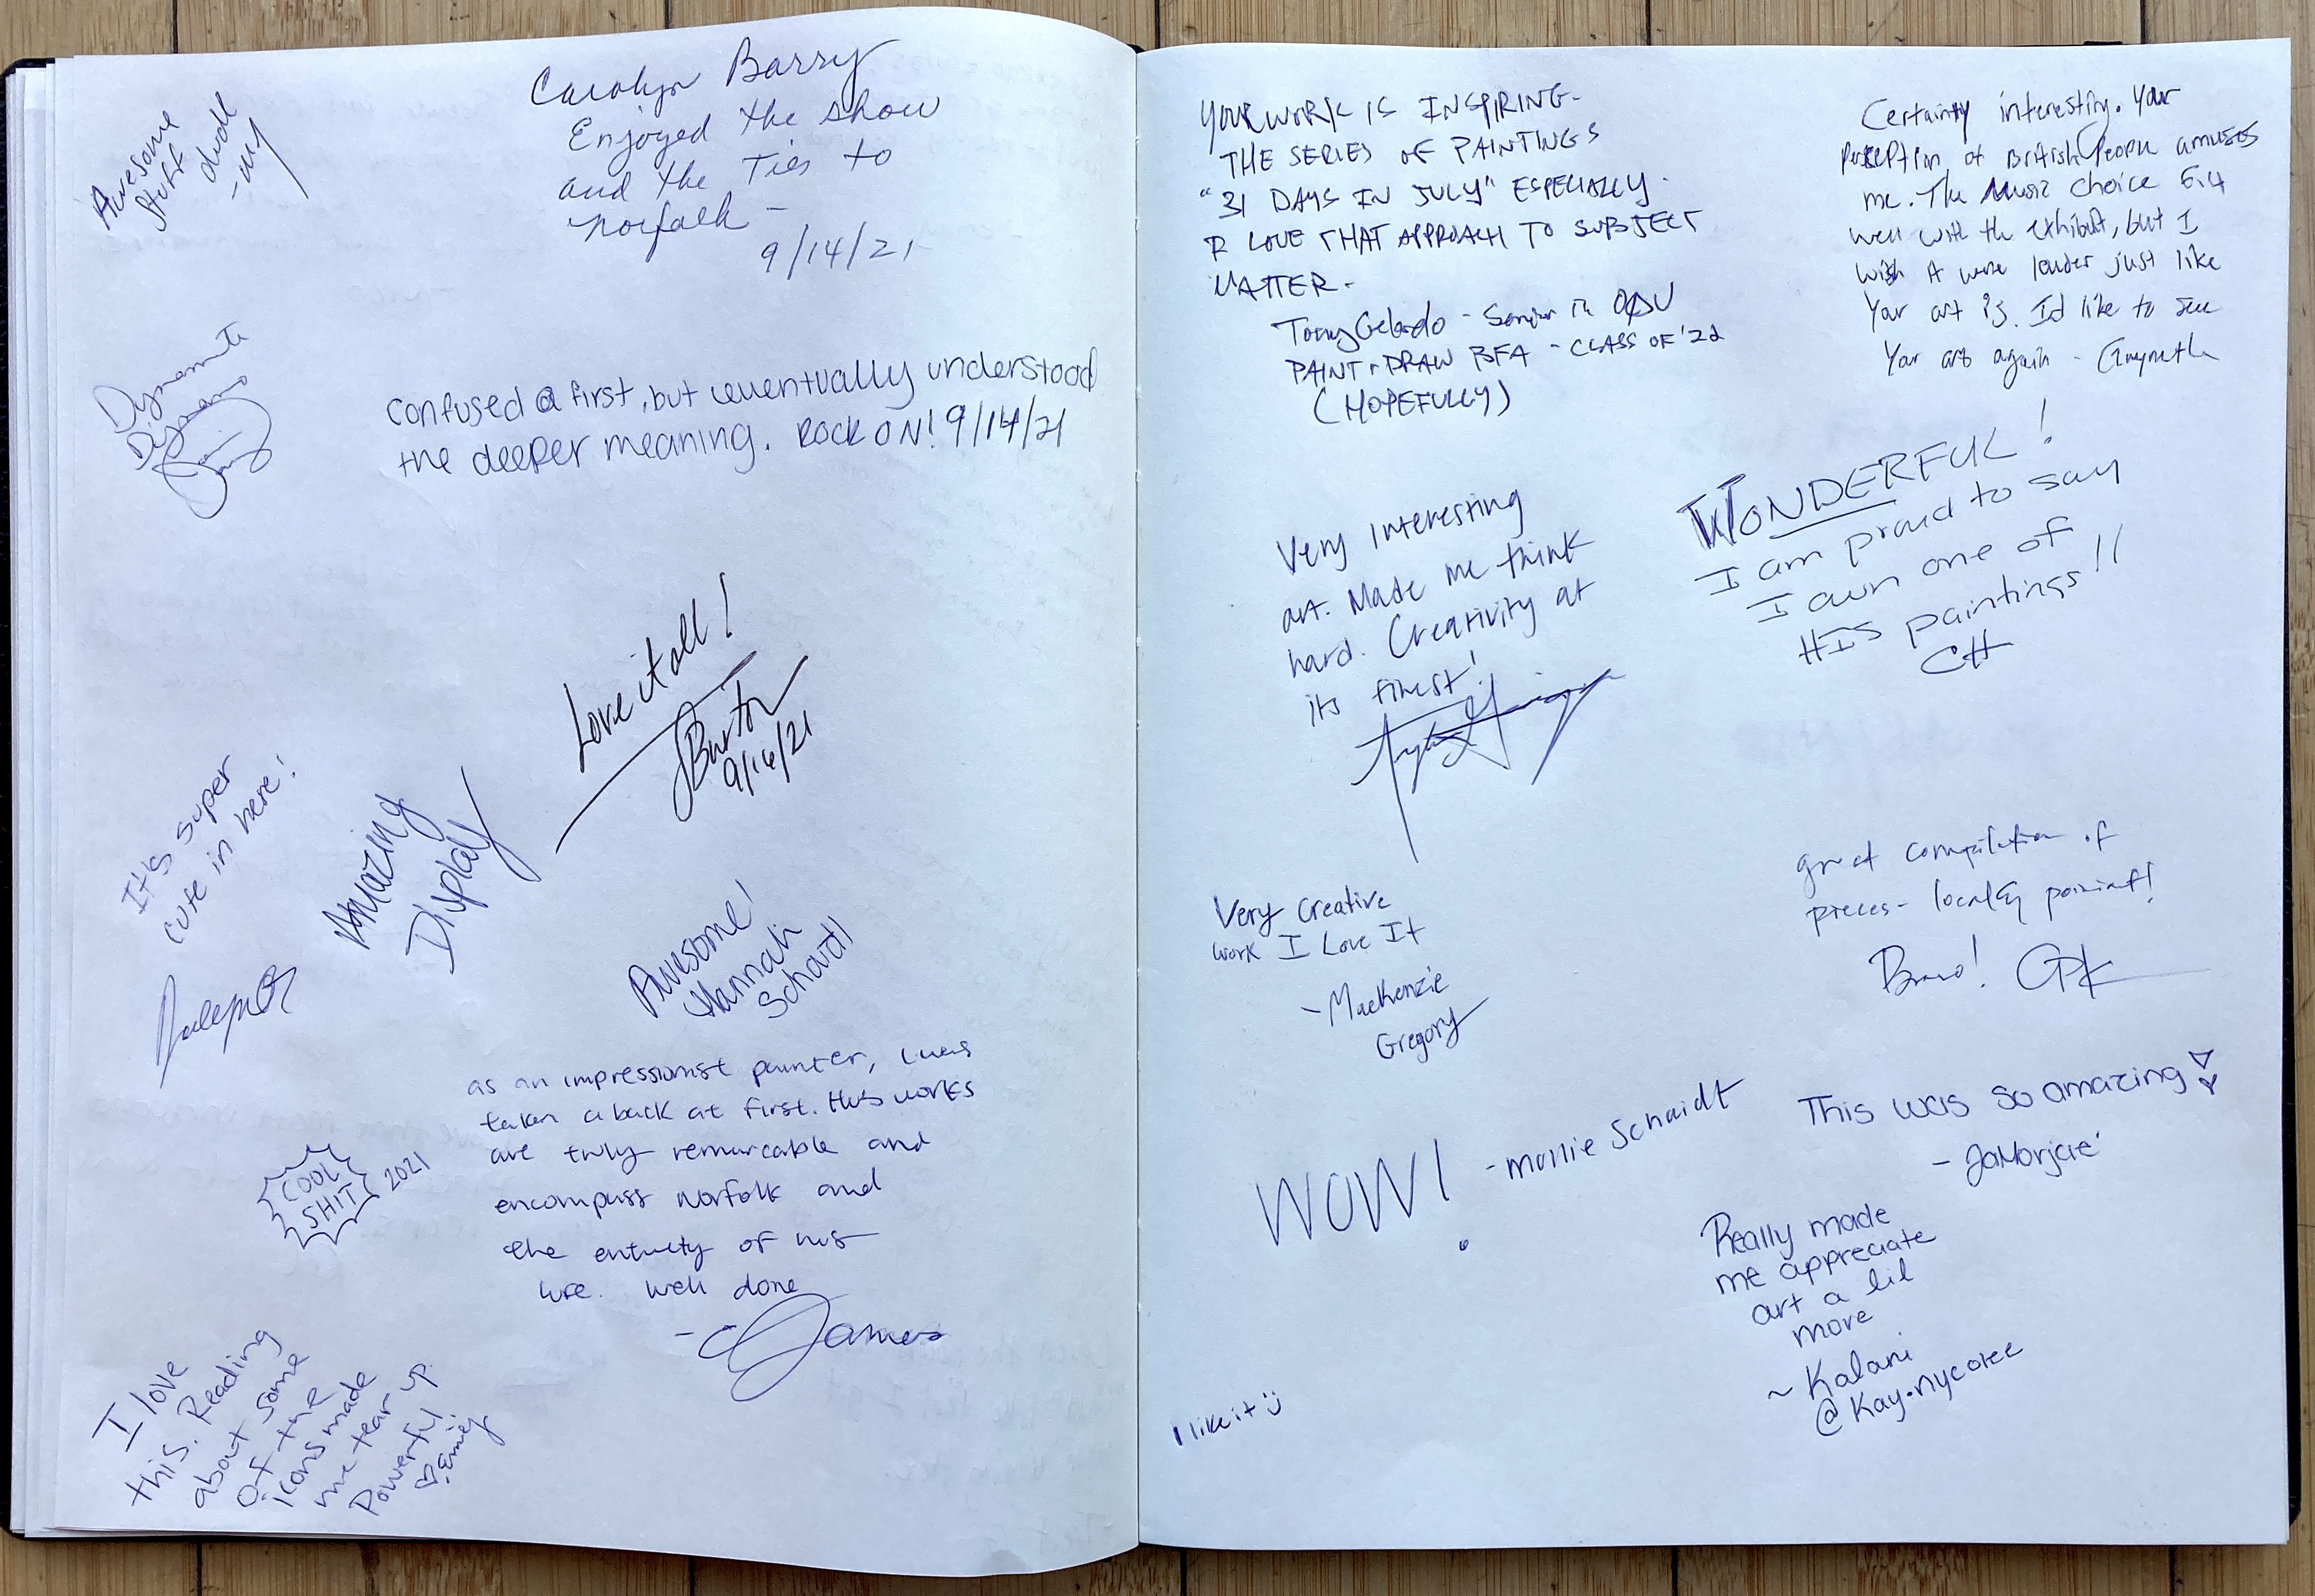 Awesome
stuff
dude
Carolyn Barry
Enjoyed the show
and the Ties to
Norfolk -
9/14/21
Dynamite
Confused @ first, but eventually understood
the deeper meaning. ROCK ON! 9/14/21
Love it all!
Burton
9/16/21
It's super
cute in here!
Amazing
Display
Awesome!
Hannah
Schardl
as an impressionist painter, I was
taken aback at first. His works
are truly remarkable and
encompass Norfolk and
the entirety of his
life. Well done
- James
COOL
SHIT
2021
I love
this. Reading
about some
of the
icons made
me tear up.
Powerful.
YOUR WORK IS INSPIRING.
THE SERIES OF PAINTINGS
"31 DAYS IN JULY" ESPECIALLY.
I LOVE THAT APPROACH TO SUBJECT
MATTER.
Tony - Senior in ODU
PAINT + DRAW BFA - CLASS OF '22
(HOPEFULLY)
Certainly interesting. Your
perception of British People amuses
me. The Music choice fit
well with the exhibit, but I
wish it were louder just like
Your art is. I'd like to see
Your art again - Gwyneth
Very interesting
art. Made me think
hard. Creativity at
its finest!
WONDERFUL!
I am proud to say
I own one of
HIS paintings!!
CH
Very Creative
work I Love It
- MacKenzie
Gregory
great compilation of
pieces - locally poignant!
Bravo! GPK
WOW! - Mollie Schaidt
This was so amazing!
- JaMorjeié
Really made
me appreciate
art a lil
more
~ Kalani
@Kay.nycolee
I like it :)